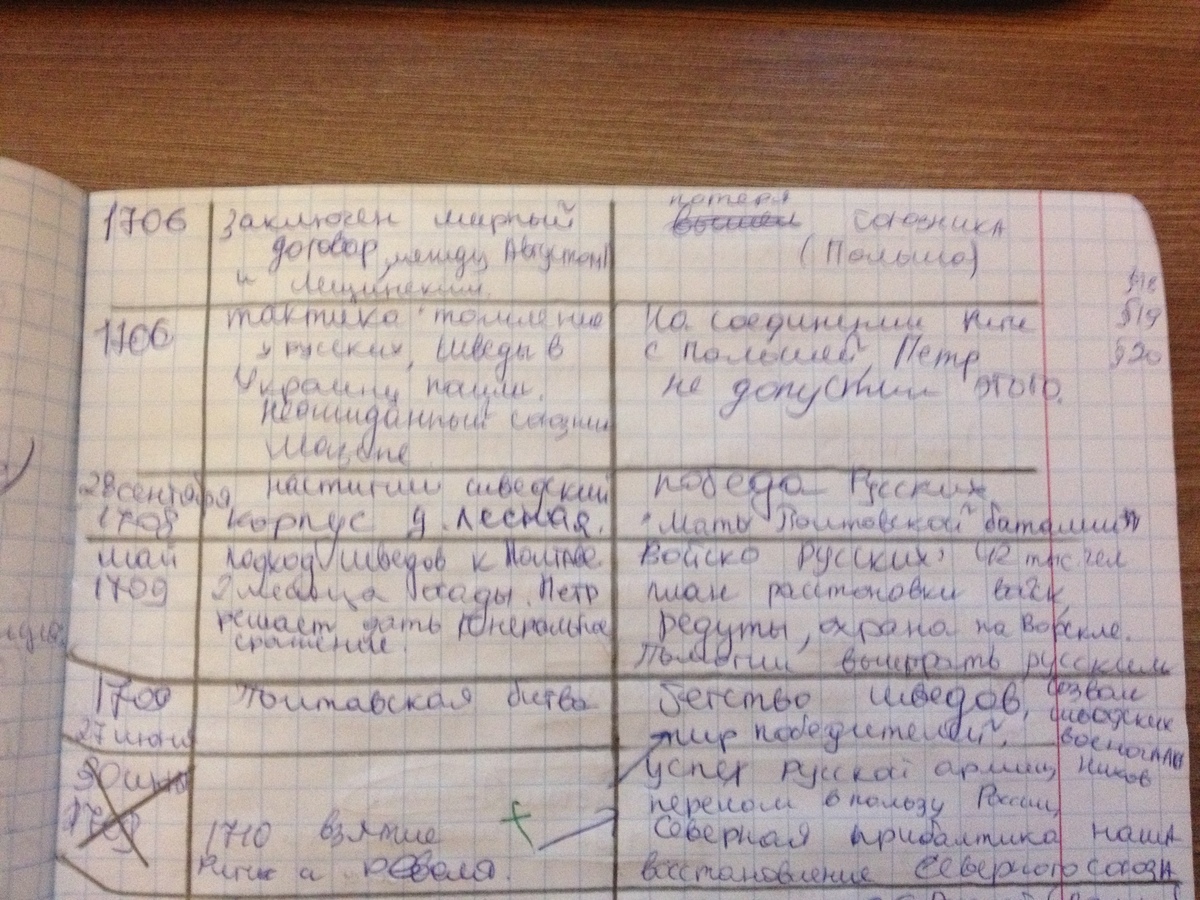 1706
заключен мирный
договор между Августом
и Лещинским.
потеря
союзника
(Польша)
§18
§19
§20
1706
тактика томление
у русских, шведы в
Украину пошли.
неожиданный союзник
Мазепе
На соединении Риги
с Польшей, Петр
не допустил этого.
28 сентября
1708
настигли шведский
корпус у д. Лесная.
победа Русских
"Мать Полтавской баталии"
май
1709
подход шведов к Полтаве.
2 месяца осады. Петр
решает дать генеральное
сражение.
Войско русских: 42 тыс. чел
план расстановки войск,
редуты, охрана на Ворскле.
Помогли выиграть русским
1709
27 июня
Полтавская битва
бегство шведов, созвал
шведских
военоплен
ников
"пир победителей".
30 июня
1709
1710 взятие
Риги и Ревеля.
успех русской армии,
перелом в пользу России,
Северная прибалтика наша
восстановление Северного союза